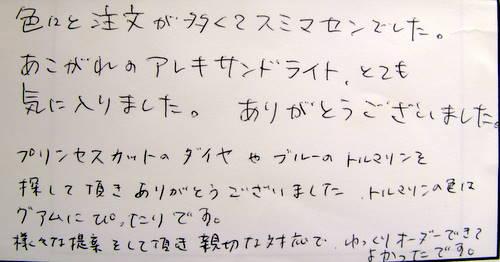 色々と注文が多くてスミマセンでした。
あこがれのアレキサンドライト、とても
気に入りました。 ありがとうございました。
プリンセスカットのダイヤやブルーのトルマリンを
探して頂きありがとうございました トルマリンの色は
グアムにぴったりです。
様々な提案をして頂き 親切な対応で、ゆっくりオーダーできて
よかったです。